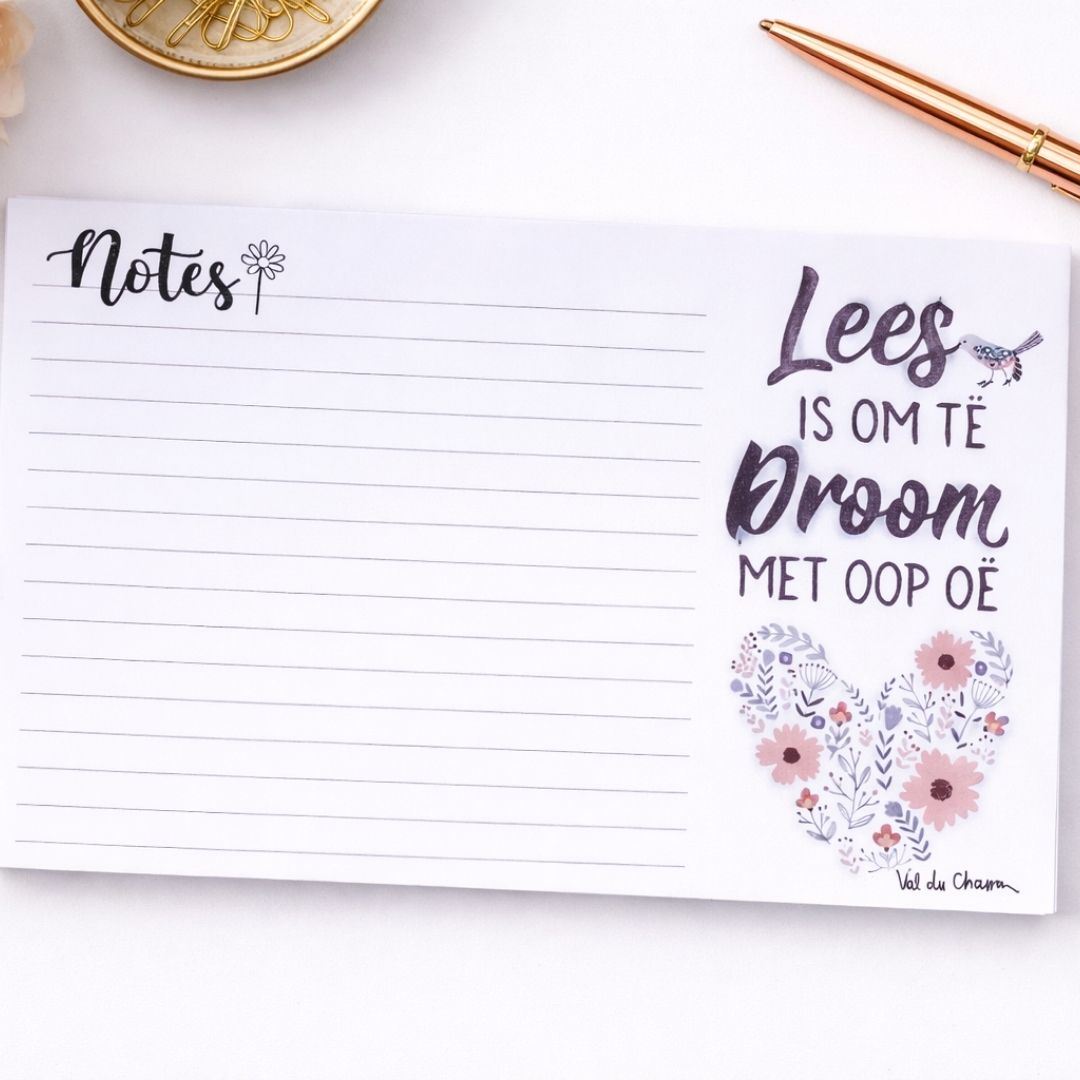 Notes
Lees
IS OM TË
Droom
MET OOP OË
Val du Charron